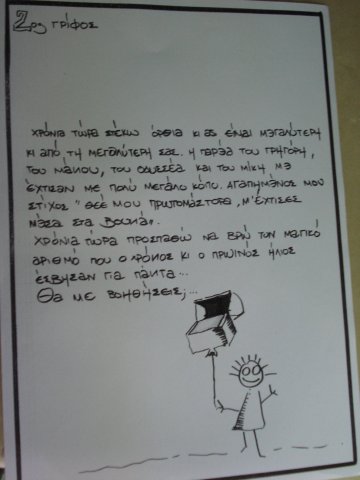 2ος ΓΡΙΦΟΣ
ΧΡΟΝΙΑ ΤΩΡΑ ΣΤΕΚΩ ΟΡΘΙΑ ΚΙ ΑΣ ΕΙΜΑΙ ΜΕΓΑΛΥΤΕΡΗ
ΚΙ ΑΠΟ ΤΗ ΜΕΓΑΛΥΤΕΡΗ ΣΑΣ. Η ΠΑΡΕΑ ΤΟΥ ΓΡΗΓΟΡΗ,
ΤΟΥ ΜΑΝΟΥ, ΤΟΥ ΟΔΥΣΣΕΑ ΚΑΙ ΤΟΥ ΜΙΚΗ ΜΕ
ΕΧΤΙΣΑΝ ΜΕ ΠΟΛΥ ΜΕΓΑΛΟ ΚΟΠΟ. ΑΓΑΠΗΜΕΝΟΣ ΜΟΥ
ΣΤΙΧΟΣ "ΘΕΕ ΜΟΥ ΠΡΩΤΟΜΑΣΤΟΡΑ, Μ'ΕΧΤΙΣΕΣ
ΜΕΣΑ ΣΤΑ ΒΟΥΝΑ".
ΧΡΟΝΙΑ ΤΩΡΑ ΠΡΟΣΠΑΘΩ ΝΑ ΒΡΩ ΤΟΝ ΜΑΓΙΚΟ
ΑΡΙΘΜΟ ΠΟΥ Ο ΧΡΟΝΟΣ ΚΙ Ο ΠΡΩΙΝΟΣ ΗΛΙΟΣ
ΕΣΒΗΣΑΝ ΓΙΑ ΠΑΝΤΑ...
ΘΑ ΜΕ ΒΟΗΘΗΣΕΙΣ;...